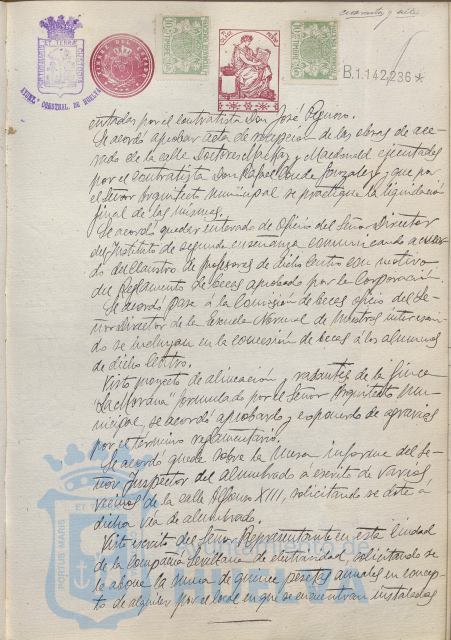 cuarenta y seis
B.1.142.236*
AYUNT.º CONSTNAL. DE HUELVA
entadas por el contratista Don José
Se acordó aprobar acta de recepción de las obras de ace-
rado de la calle Doctores y Macdonald ejecutadas
por el contratista Don Rafael Conde Gonzalez, y que por
el Señor Arquitecto municipal se practique la liquidación
final de las mismas.
Se acordó quedar enterado de Oficio del Señor Director
del Instituto de segunda enseñanza comunicando acuer-
do del Claustro de Profesores de dicho Centro con motivo
del Reglamento de becas aprobado por la Corporación.
Se acordó pase á la Comisión de becas oficio del Se-
ñor Director de la Escuela Normal de Maestros interesan-
do se incluyan en la concesión de becas á los alumnos
de dicho Centro.
Visto proyecto de alineación y rasantes de la finca
"La Morana" formulado por el Señor Arquitecto Mu-
nicipal, se acordó aprobarlo y exponerlo de agravios
por el término reglamentario.
Se acordó quede sobre la mesa informe del Se-
ñor Inspector del alumbrado á escrito de varios
vecinos de la calle Alfonso XIII, solicitando se dote á
dicha vía de alumbrado.
Visto escrito del Señor Representante en esta Ciudad
de la Compañía Sevillana de electricidad, solicitando se
le abone la suma de quince pesetas anuales en concep-
to de alquiler por el local en que se encuentran instalados
PORTUS MARIS